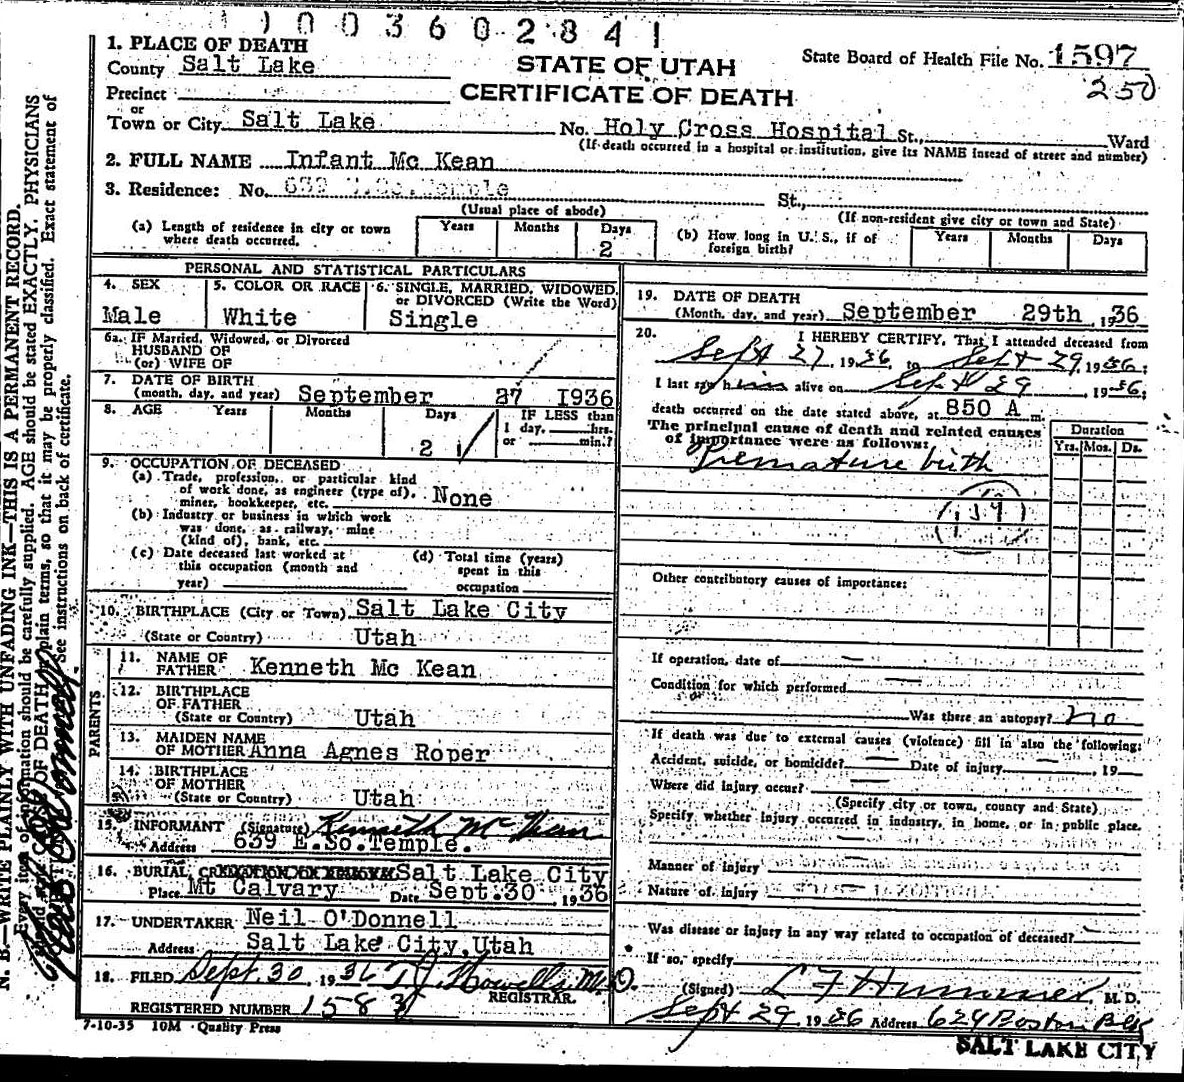 1 0 0 3 6 0 2 8 4 1
1. PLACE OF DEATH
County Salt Lake
STATE OF UTAH
State Board of Health File No. 1597
Precinct
CERTIFICATE OF DEATH
250
or
Town or City Salt Lake No. Holy Cross Hospital St., Ward
(If death occurred in a hospital or institution, give its NAME instead of street and number)
2. FULL NAME Infant Mc Kean
3. Residence: No. 639 Temple St.,
(Usual place of abode) (If non-resident give city or town and State)
(a) Length of residence in city or town where death occurred. Years Months Days 2
(b) How long in U. S., if of foreign birth? Years Months Days
PERSONAL AND STATISTICAL PARTICULARS
4. SEX Male
5. COLOR OR RACE White
6. SINGLE, MARRIED, WIDOWED, or DIVORCED (Write the Word) Single
6a. IF Married, Widowed, or Divorced
HUSBAND OF
(or) WIFE OF
7. DATE OF BIRTH
(month, day, and year) September 27 1936
8. AGE Years Months Days 2
IF LESS than
1 day, hrs.
or min.?
9. OCCUPATION OF DECEASED
(a) Trade, profession, or particular kind
of work done, as engineer (type of),
miner, bookkeeper, etc. None
(b) Industry or business in which work
was done, as railway, mine
(kind of), bank, etc.
(c) Date deceased last worked at
this occupation (month and
year)
(d) Total time (years)
spent in this
occupation
10. BIRTHPLACE (City or Town) Salt Lake City
(State or Country) Utah
PARENTS
11. NAME OF
FATHER Kenneth Mc Kean
12. BIRTHPLACE
OF FATHER
(State or Country) Utah
13. MAIDEN NAME
OF MOTHER Anna Agnes Roper
14. BIRTHPLACE
OF MOTHER
(State or Country) Utah
15. INFORMANT (Signature) Kenneth McKean
Address 639 E.So.Temple.
16. BURIAL, Salt Lake City
Place Mt Calvary Date Sept.30, 1936
17. UNDERTAKER Neil O'Donnell
Address Salt Lake City,Utah
18. FILED Sept. 30, 1936 T.J. Howells M.D.
REGISTRAR.
REGISTERED NUMBER 1583
7-10-35 10M Quality Press
19. DATE OF DEATH
(Month, day, and year) September 29th, 1936
20. I HEREBY CERTIFY, That I attended deceased from
Sept 27, 1936, to Sept 29, 1936;
I last saw him alive on Sept 29, 1936;
death occurred on the date stated above, at 850 A m.
The principal cause of death and related causes
of importance were as follows:
Duration
Yrs. Mos. Ds.
Premature birth
159
Other contributory causes of importance:
If operation, date of
Condition for which performed
Was there an autopsy? no
If death was due to external causes (violence) fill in also the following:
Accident, suicide, or homicide? Date of injury, 19
Where did injury occur?
(Specify city or town, county and State)
Specify whether injury occurred in industry, in home, or in public place.
Manner of injury
Nature of injury
Was disease or injury in any way related to occupation of deceased?
If so, specify
(Signed) L F Hummer, M. D.
Sept 29, 1936 Address 624 Boston Blk
SALT LAKE CITY
N. B.—WRITE PLAINLY WITH UNFADING INK—THIS IS A PERMANENT RECORD.
Every item of information should be carefully supplied. AGE should be stated EXACTLY. PHYSICIANS
should state CAUSE OF DEATH in plain terms, so that it may be properly classified. Exact statement of
See instructions on back of certificate.